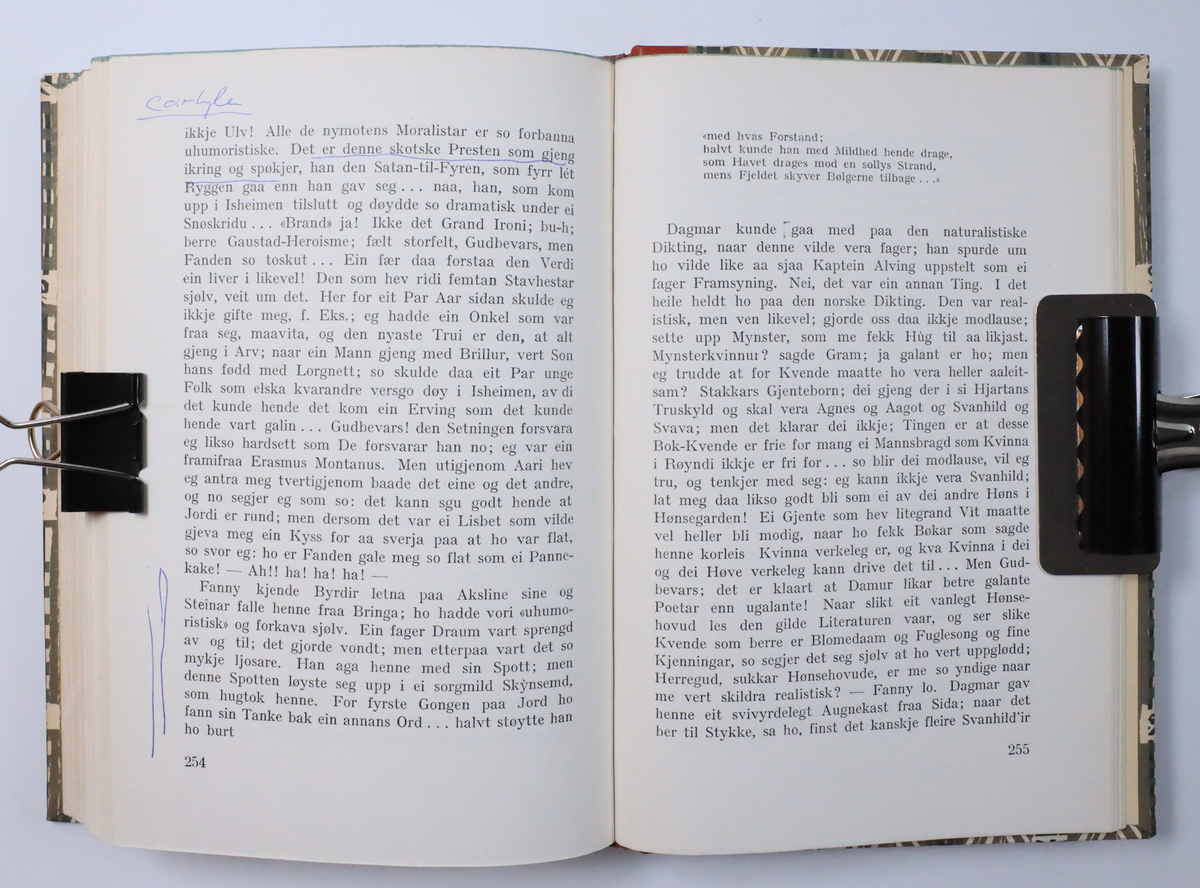 Carlyle
ikkje Ulv! Alle de nymotens Moralistar er so forbanna
uhumoristiske. Det er denne skotske Presten som gjeng
ikring og spøkjer, han den Satan-til-Fyren, som fyrr lét
Ryggen gaa enn han gav seg... naa, han, som kom
upp i Isheimen tilslutt og døydde so dramatisk under ei
Snøskridu... «Brand» ja! Ikke det Grand Ironi; bu-h;
berre Gaustad-Heroisme; fælt storfelt, Gudbevars, men
Fanden so toskut... Ein fær daa forstaa den Verdi
ein liver i likevel! Den som hev rìdi femtan Stavhestar
sjølv, veit um det. Her for eit Par Aar sidan skulde eg
ikkje gifte meg, f. Eks.; eg hadde ein Onkel som var
fraa seg, maavita, og den nyaste Trui er den, at alt
gjeng i Arv; naar ein Mann gjeng med Brillur, vert Son
hans fødd med Lorgnett; so skulde daa eit Par unge
Folk som elska kvarandre versgo døy i Isheimen, av di
det kunde hende det kom ein Erving som det kunde
hende vart galin... Gudbevars! den Setningen forsvara
eg likso hardsett som De forsvarar han no; eg var ein
framifraa Erasmus Montanus. Men utigjenom Aari hev
eg antra meg tvertigjenom baade det eine og det andre,
og no segjer eg som so: det kann sgu godt hende at
Jordi er rund; men dersom det var ei Lisbet som vilde
gjeva meg ein Kyss for aa sverja paa at ho var flat,
so svor eg: ho er Fanden gale meg so flat som ei Panne-
kake! — Ah!! ha! ha! ha! —
Fanny kjende Byrdir letna paa Aksline sine og
Steinar falle henne fraa Bringa; ho hadde vori «uhumo-
ristisk» og forkava sjølv. Ein fager Draum vart sprengd
av og til; det gjorde vondt; men etterpaa vart det so
mykje ljosare. Han aga henne med sin Spott; men
denne Spotten løyste seg upp i ei sorgmild Skỳnsemd,
som hugtok henne. For fyrste Gongen paa Jord ho
fann sin Tanke bak ein annans Ord... halvt støytte han
ho burt
254
«med hvas Forstand;
halvt kunde han med Mildhed hende drage,
som Havet drages mod en sollys Strand,
mens Fjeldet skyver Bølgerne tilbage...»
Dagmar kunde gaa med paa den naturalistiske
Dikting, naar denne vilde vera fager; han spurde um
ho vilde like aa sjaa Kaptein Alving uppstelt som ei
fager Framsyning. Nei, det var ein annan Ting. I det
heile heldt ho paa den norske Dikting. Den var real-
istisk, men ven likevel; gjorde oss daa ikkje modlause;
sette upp Mynster, som me fekk Hùg til aa likjast.
Mynsterkvinnur? sagde Gram; ja galant er ho; men
eg trudde at for Kvende maatte ho vera heller aaleit-
sam? Stakkars Gjenteborn; dei gjeng der i si Hjartans
Truskyld og skal vera Agnes og Aagot og Svanhild og
Svava; men det klarar dei ikkje; Tingen er at desse
Bok-Kvende er frie for mang ei Mannsbragd som Kvinna
i Røyndi ikkje er fri for... so blir dei modlause, vil eg
tru, og tenkjer med seg: eg kann ikkje vera Svanhild;
lat meg daa likso godt bli som ei av dei andre Høns i
Hønsegarden! Ei Gjente som hev litegrand Vit maatte
vel heller bli modig, naar ho fekk Bøkar som sagde
henne korleis Kvinna verkeleg er, og kva Kvinna i dei
og dei Høve verkeleg kann drive det til... Men Gud-
bevars; det er klaart at Damur likar betre galante
Poetar enn ugalante! Naar slikt eit vanlegt Hønse-
hovud les den gilde Literaturen vaar, og ser slike
Kvende som berre er Blomedaam og Fuglesong og fine
Kjenningar, so segjer det seg sjølv at ho vert uppglødd;
Herregud, sukkar Hønsehovude, er me so yndige naar
me vert skildra realistisk? — Fanny lo. Dagmar gav
henne eit svivyrdelegt Augnekast fraa Sida; naar det
ber til Stykke, sa ho, finst det kanskje fleire Svanhild'ir
255